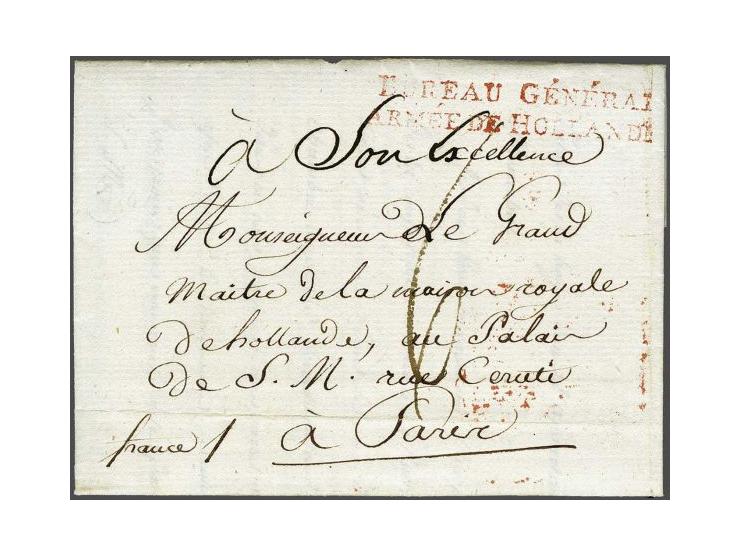 BUREAU GÉNÉRAL
ARMÉE DE HOLLANDE
à Son Excellence
Monseigneur Le Grand
Maitre de la maison royale
De hollande, au Palais
De S. M. rue Ceruti
à Paris
france 1
6